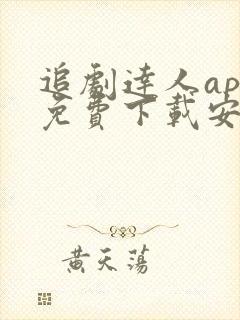 追劇達人ap
免費下載安
黃天蕩